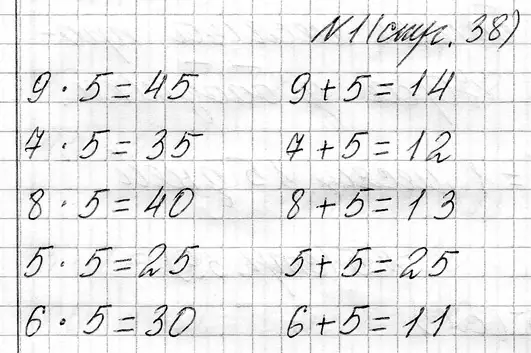 №1 (стр. 38)
9 · 5 = 45 9 + 5 = 14
7 · 5 = 35 7 + 5 = 12
8 · 5 = 40 8 + 5 = 13
5 · 5 = 25 5 + 5 = 25
6 · 5 = 30 6 + 5 = 11